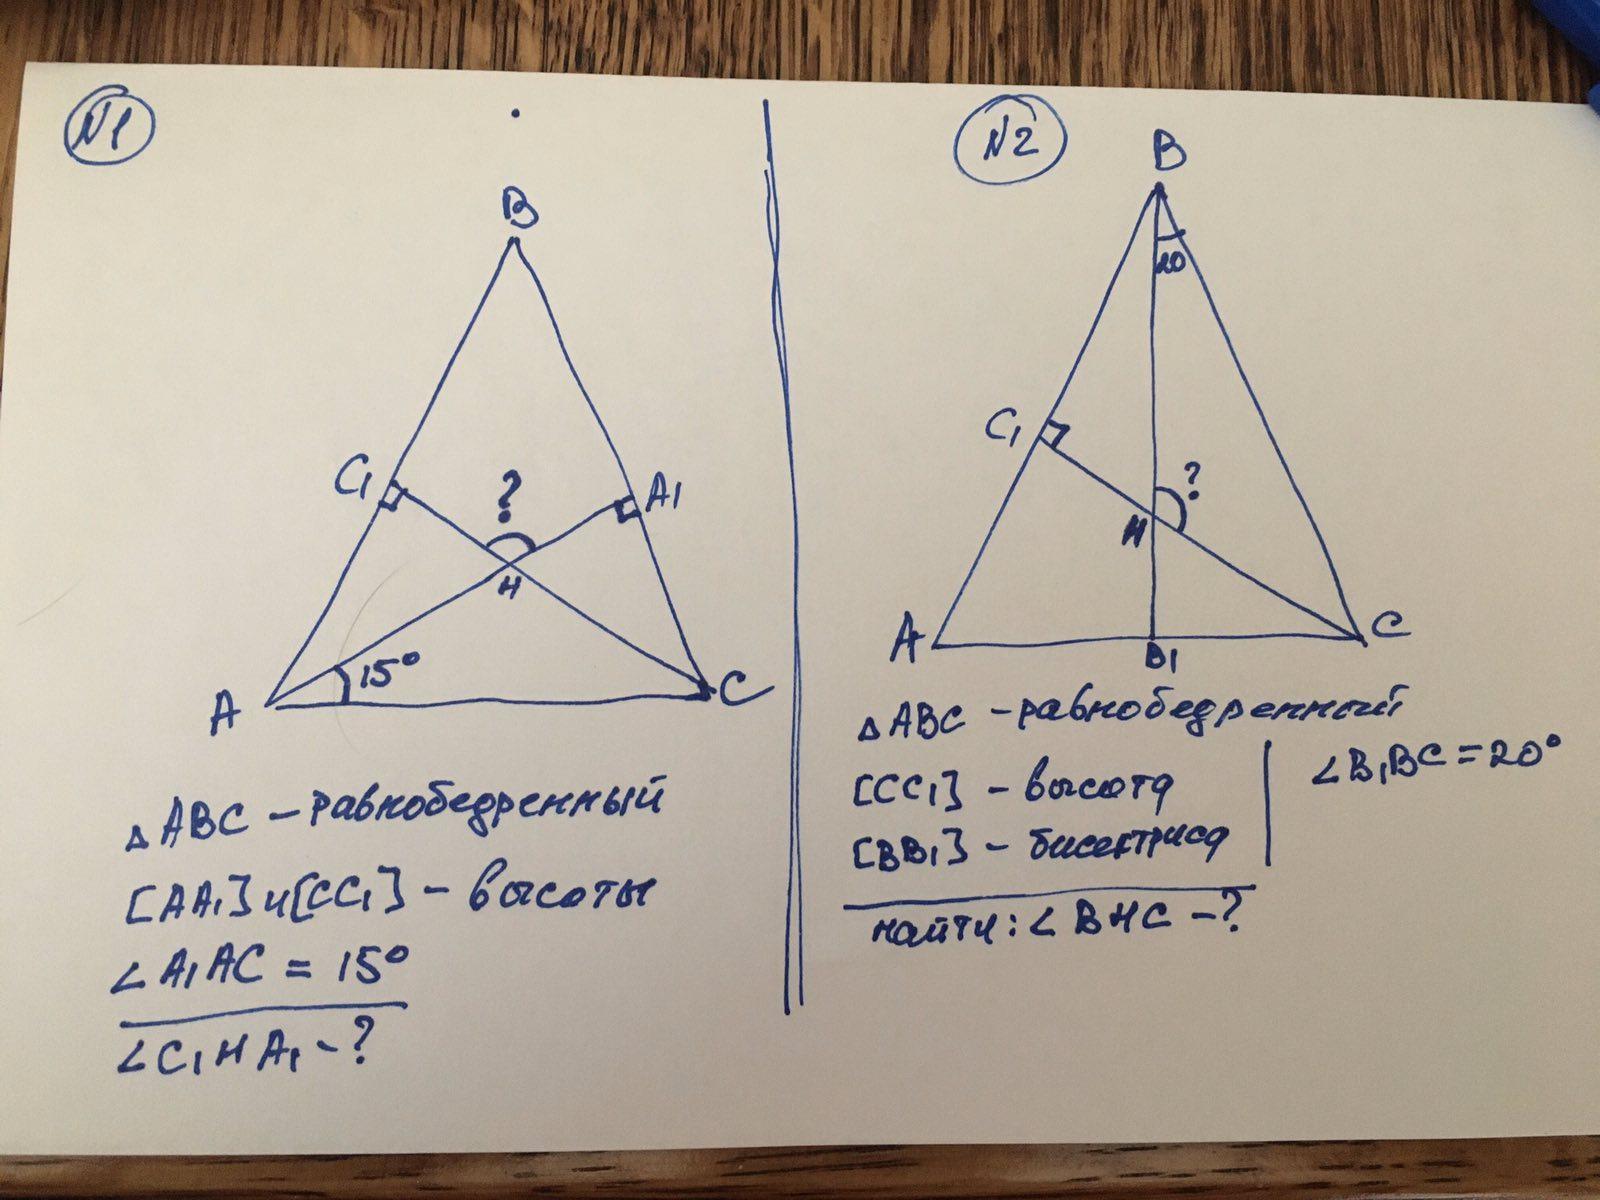 N1
B
C1
?
A1
H
15°
A
C
△ABC – равнобедренный
[AA1] и [CC1] – высоты
∠A1AC = 15°
∠C1HA1 – ?
N2
B
20
C1
?
H
A
B1
C
△ABC – равнобедренный
[CC1] – высота
∠B1BC = 20°
[BB1] – бисектриса
найти: ∠BHC – ?